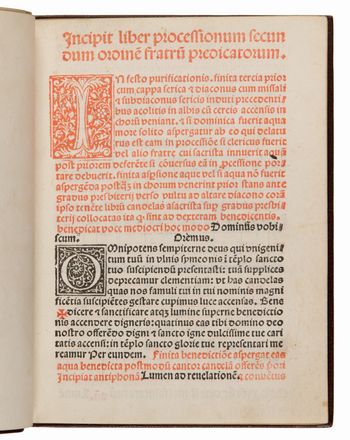 Incipit liber processionum secun
dum ordinẽ fratrũ predicatorum.
IN festo purificationis. finita tercia prior
cum cappa serica & diaconus cum missali
& subdiaconus sericis induti precedenti
bus acolitis in albis cũ cereis accensis in
chorũ veniant. & si dominica fuerit aqua
more solito aspergatur ab eo qui delatu
rus est eam in processione si clericus fuerit
vel alio fratre cui sacrista innuerit aquã
post priorem deferẽte si cõversus eã in processione por
tare debuerit. finita aspsione aque vel si aqua nõ fuerit
aspergẽda postq̃ in chorum venerint prior stans ante
gradus presbiterii verso vultu ad altare diacono corã
ipso tenẽte librũ candelas a sacrista sup gradus presby
terii collocatas ita q sint ad dexteram benedicentis.
benedicat voce mediocri hoc modo Dominus vobi-
scum. Oremus.
OMnipotens sempiterne deus qui unigeni
tum tuũ in ulnis symeonis ĩ tẽplo sancto
tuo suscipiendũ presentasti: tuã supplices
deprecamur clementiam: ut has candelas
quas nos famuli tui in tui nominis magni
ficẽtia suscipiẽtes gestare cupimus luce accensas. Bene
dicere & sanctificare atq̃ lumine superne benedictio
nis accendere digneris: quatinus eas tibi domino deo
nostro offerẽdo digni & sancto igne dulcissime tue cari
tatis accensi: in tẽplo sancto glorie tue representari me
reamur Per eundem. Finita benedictiõe aspergat eas
aqua benedicta postmodũ cantor candelã offerẽs pori
Incipiat antiphonã Lumen ad revelationẽ. & conventus